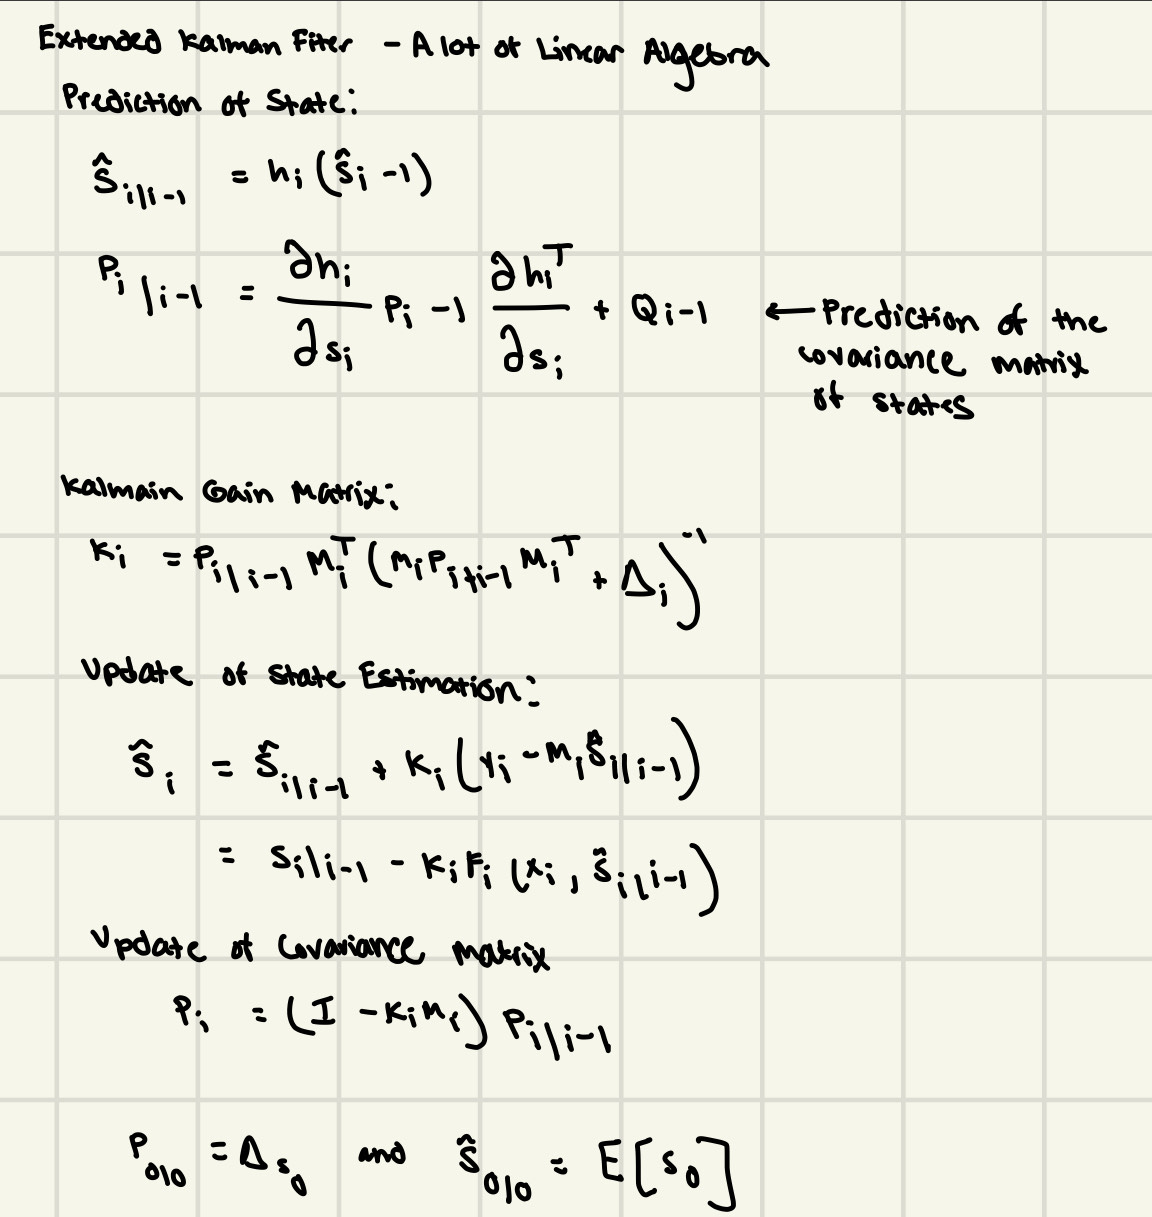 Extended Kalman Fiter - A lot of Linear Algebra
Prediction of State:
ŝ i|i-1 = hᵢ (ŝᵢ -1)
Pᵢ |i-1 = ∂hᵢ/∂sᵢ Pᵢ -1 ∂hᵢᵀ/∂sᵢ + Q i-1 ← Prediction of the
covariance matrix
of states
Kalmain Gain Matrix:
Kᵢ = P i|i-1 Mᵢᵀ (Mᵢ P i|i-1 Mᵢᵀ + Δᵢ)⁻¹
Update of State Estimation:
ŝᵢ = ŝ i|i-1 + Kᵢ (yᵢ - Mᵢ ŝ i|i-1)
= s i|i-1 - Kᵢ Fᵢ (xᵢ, ŝ i|i-1)
Update of Covariance Matrix
Pᵢ = (I - Kᵢ Mᵢ) P i|i-1
P 0|0 = Δ s₀ and ŝ 0|0 = E[s₀]